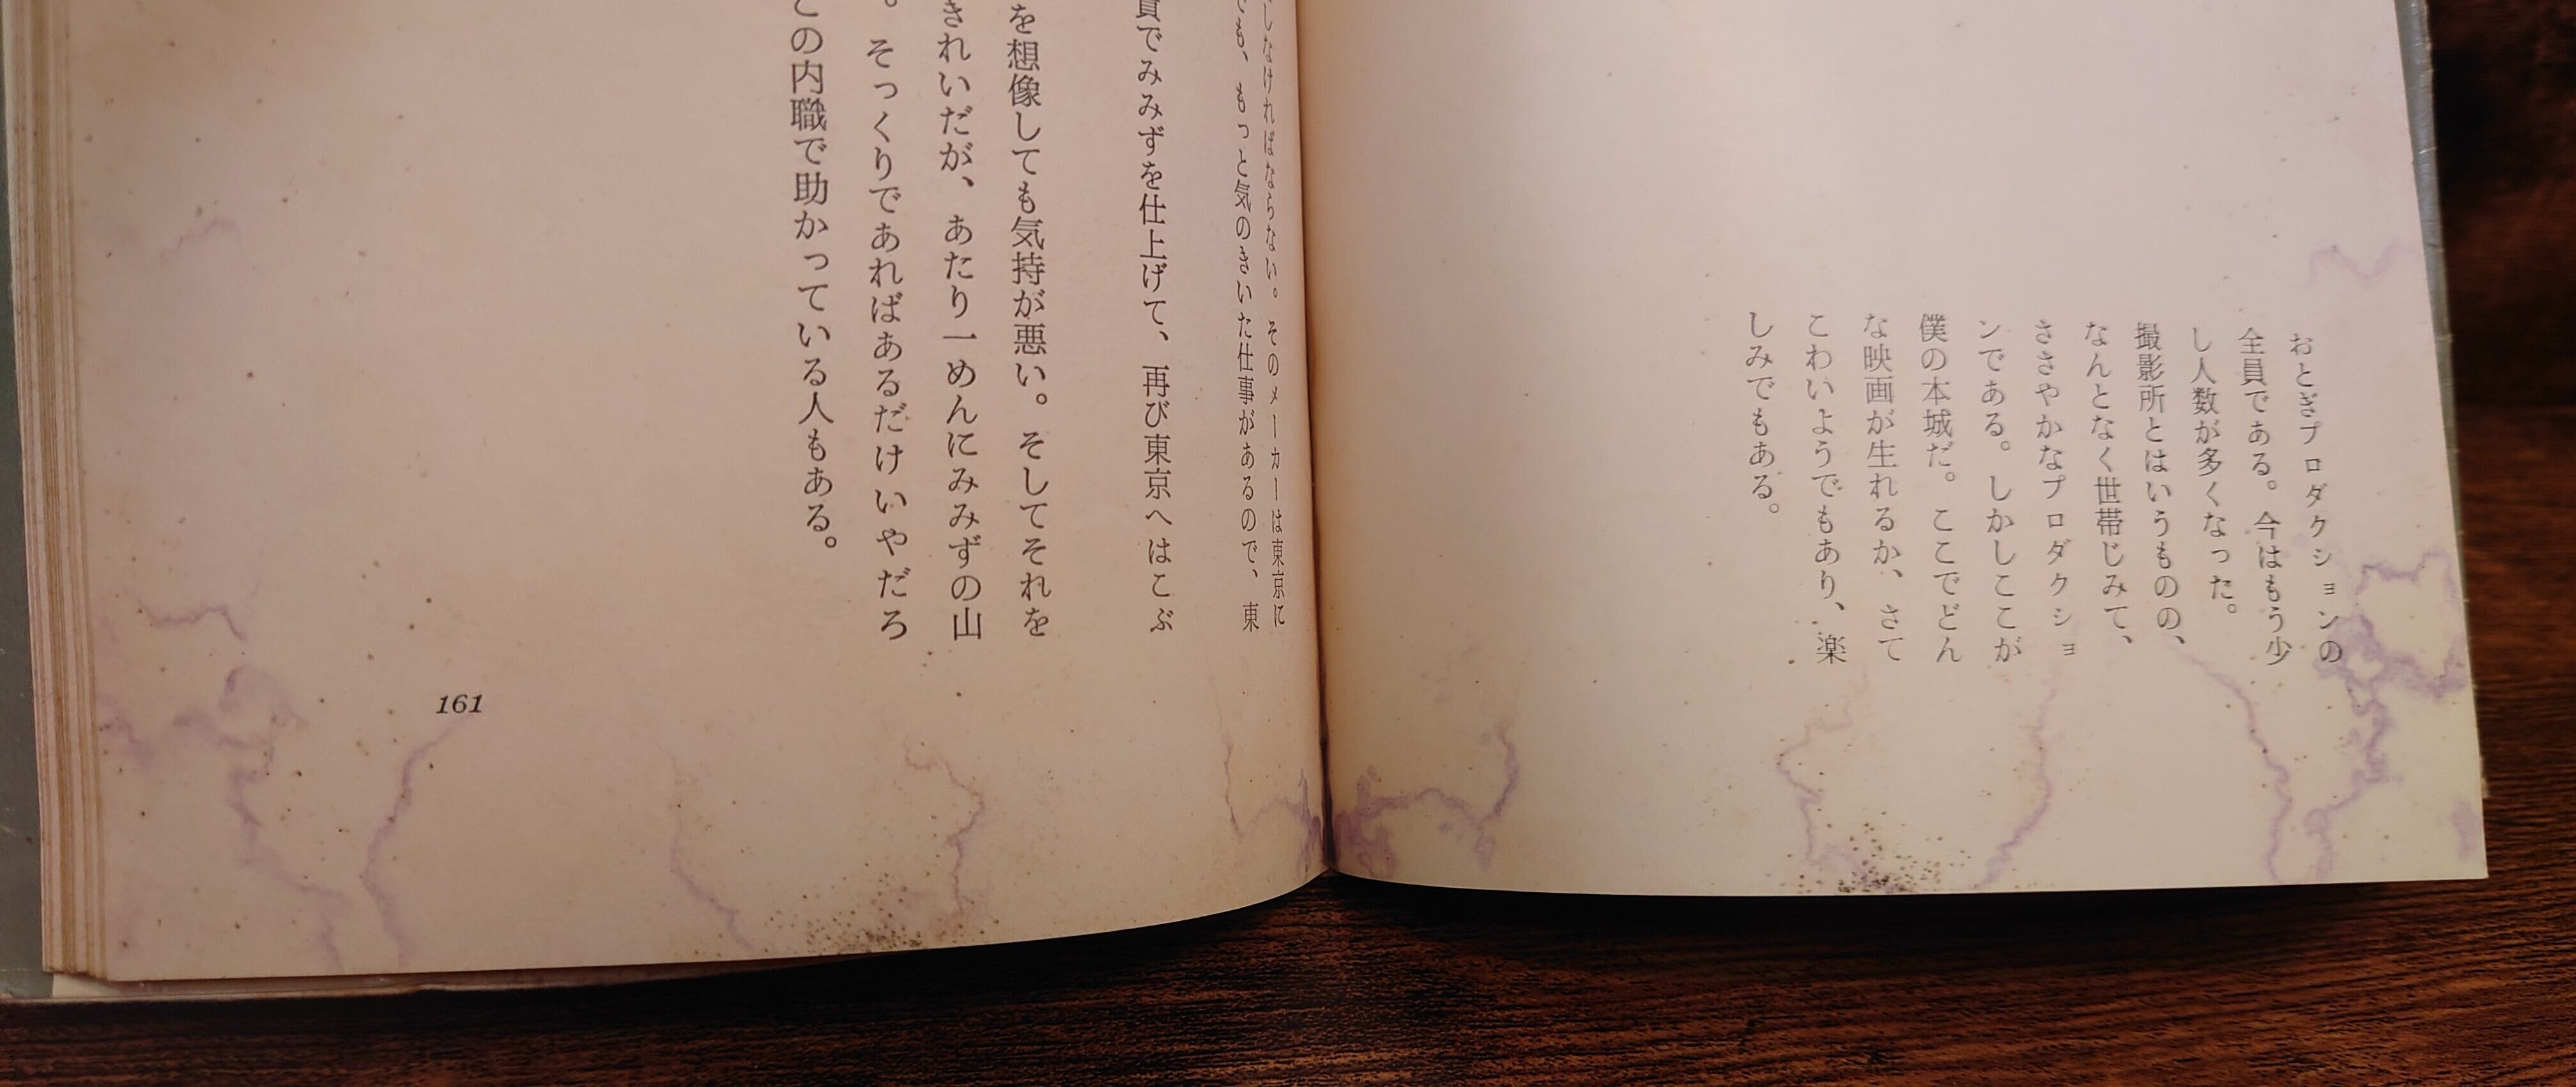 おとぎプロダクションの
全員である。今はもう少
し人数が多くなった。
撮影所とはいうものの、
なんとなく世帯じみて、
ささやかなプロダクショ
ンである。しかしここが
僕の本城だ。ここでどん
な映画が生れるか、さて
こわいようでもあり、楽
しみでもある。
しなければならない。そのメーカーは東京に
でも、もっと気のきいた仕事があるので、東
員でみみずを仕上げて、再び東京へはこぶ
を想像しても気持が悪い。そしてそれを
きれいだが、あたり一めんにみみずの山
。そっくりであればあるだけいやだろ
この内職で助かっている人もある。
161